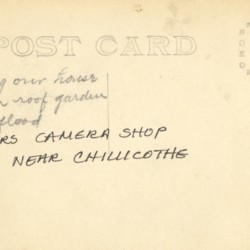 POST CARD
g our house
roof garden
flood
RS CAMERA SHOP
NEAR CHILLICOTHE